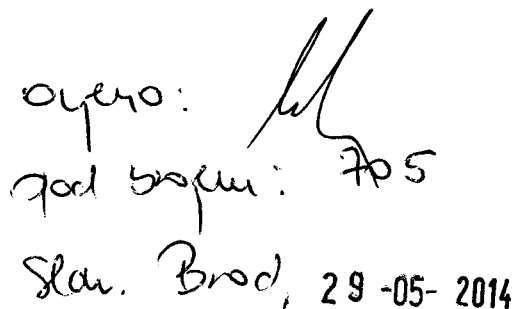 Ovjerio:
pod brojem: 705
Slav. Brod, 29-05-2014